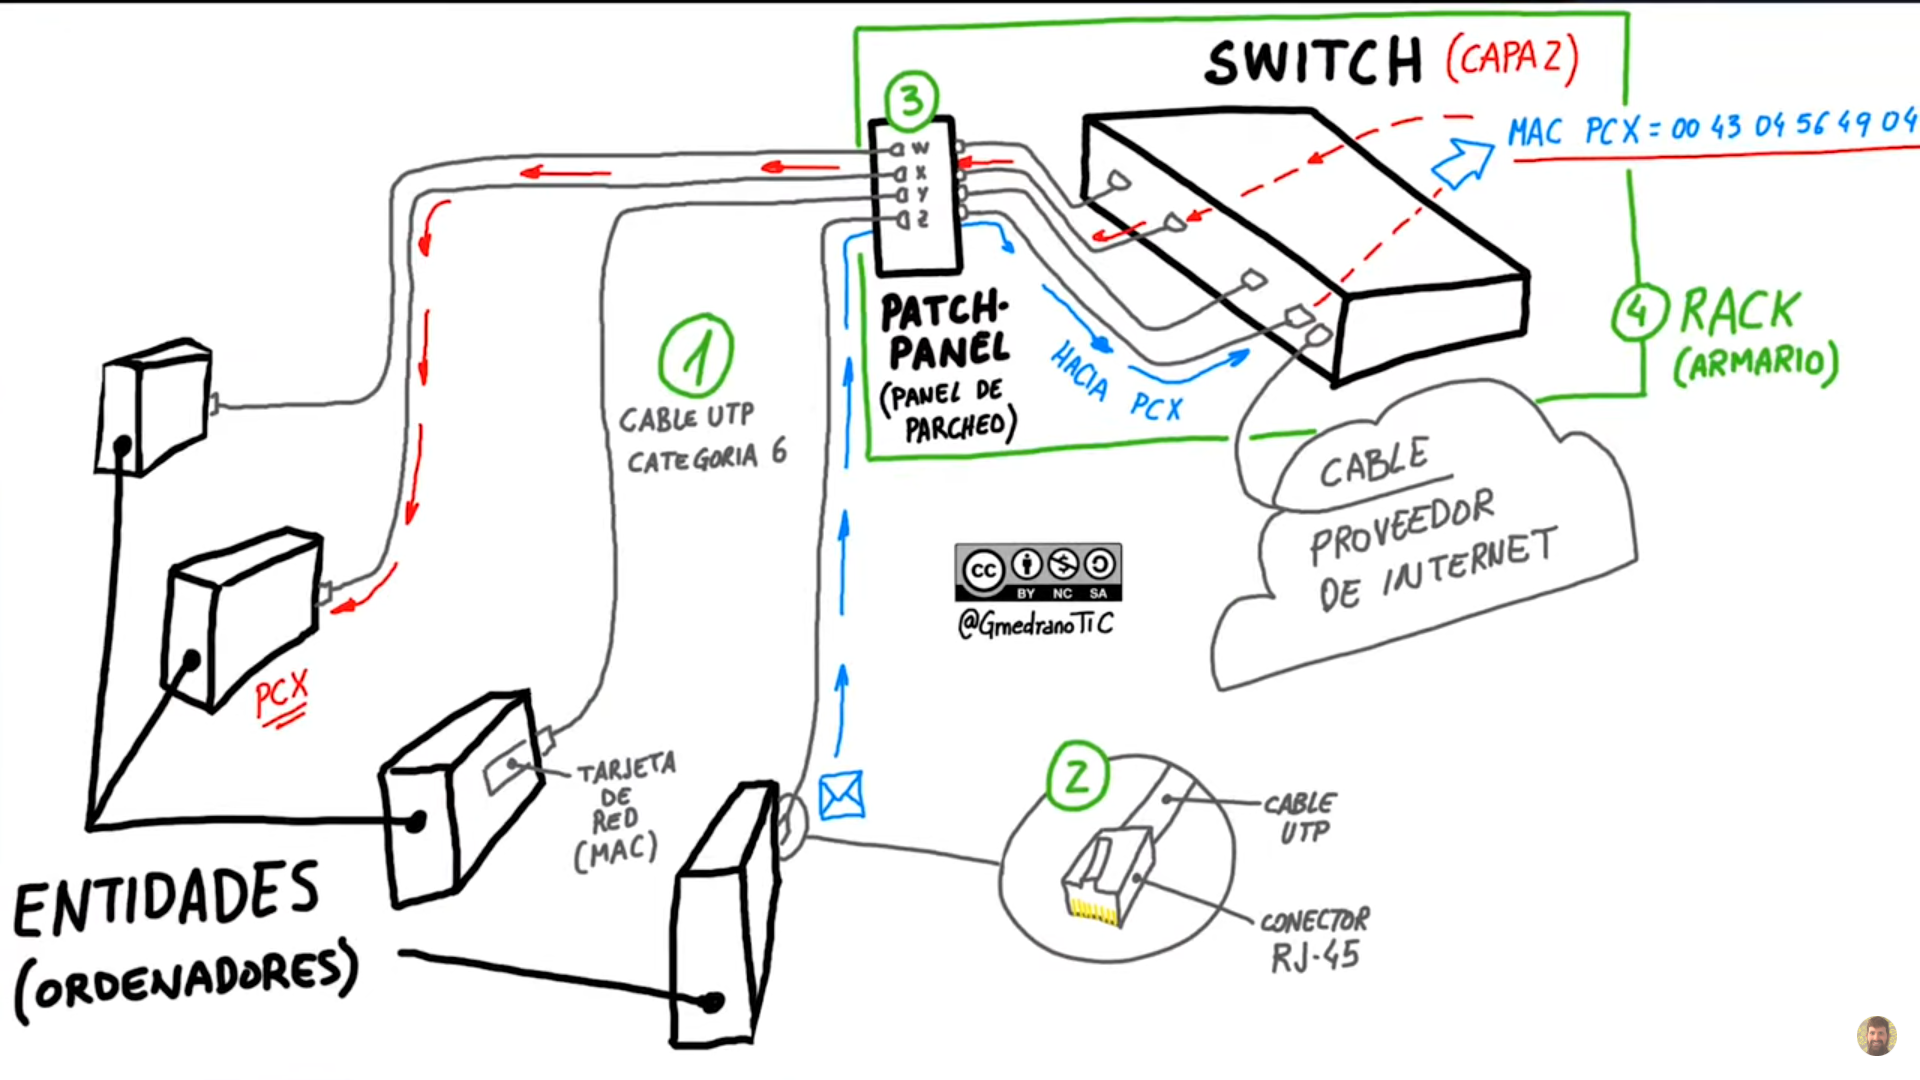 SWITCH (CAPA 2)
3
MAC PCX = 00 43 04 56 49 04
W
X
Y
Z
PATCH-
PANEL
(PANEL DE
PARCHEO)
HACIA PCX
4 RACK
(ARMARIO)
1
CABLE UTP
CATEGORIA 6
CABLE
PROVEEDOR
DE INTERNET
CC BY NC SA
@GmedranoTiC
PCX
TARJETA
DE
RED
(MAC)
2
CABLE
UTP
CONECTOR
RJ-45
ENTIDADES
(ORDENADORES)